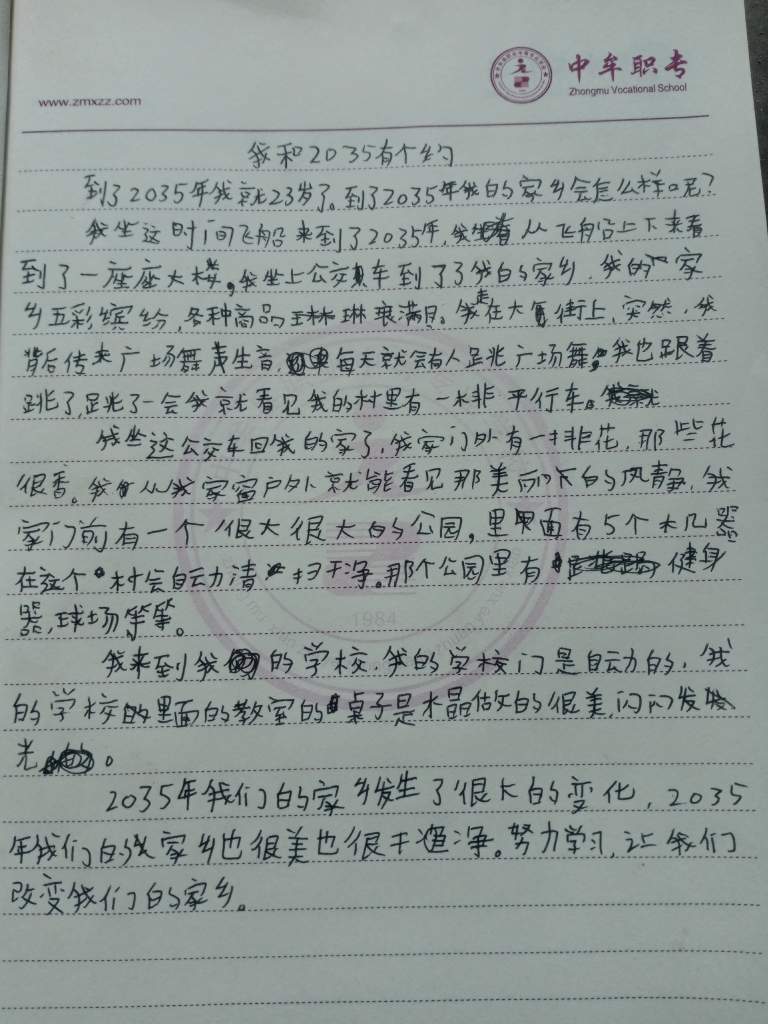 中牟职专
Zhongmu Vocational School
www.zmxzz.com
我和2035有个约
到了2035年我就23岁了。到了2035年我的家乡会怎么样呢?
我坐这时间飞船来到了2035年,我坐着从飞船上下来看
到了一座座大楼。我坐上公交车到了了我的家乡,我的家
乡五彩缤纷,各种商品琳琅满目。我走在大街上,突然,我
背后传来广场舞声生音,每天就会有人跳广场舞,我也跟着
跳了,跳了一会我就看见我的村里有一排平行车。
我坐这公交车回我的家了,我家门外有一排花,那些花
很香。我从我家窗户外就能看见那美丽的风静,我
家门前有一个很大很大的公园,里面有5个机器
在这个村会自动清扫干净。那个公园里有健身
器,球场等等。
我来到我的学校,我的学校门是自动的,我
的学校里面的教室的桌子是水晶做的很美,闪闪发
光。
2035年我们的家乡发生了很大的变化,2035
年我们的家乡也很美也很干净。努力学习,让我们
改变我们的家乡。
1984